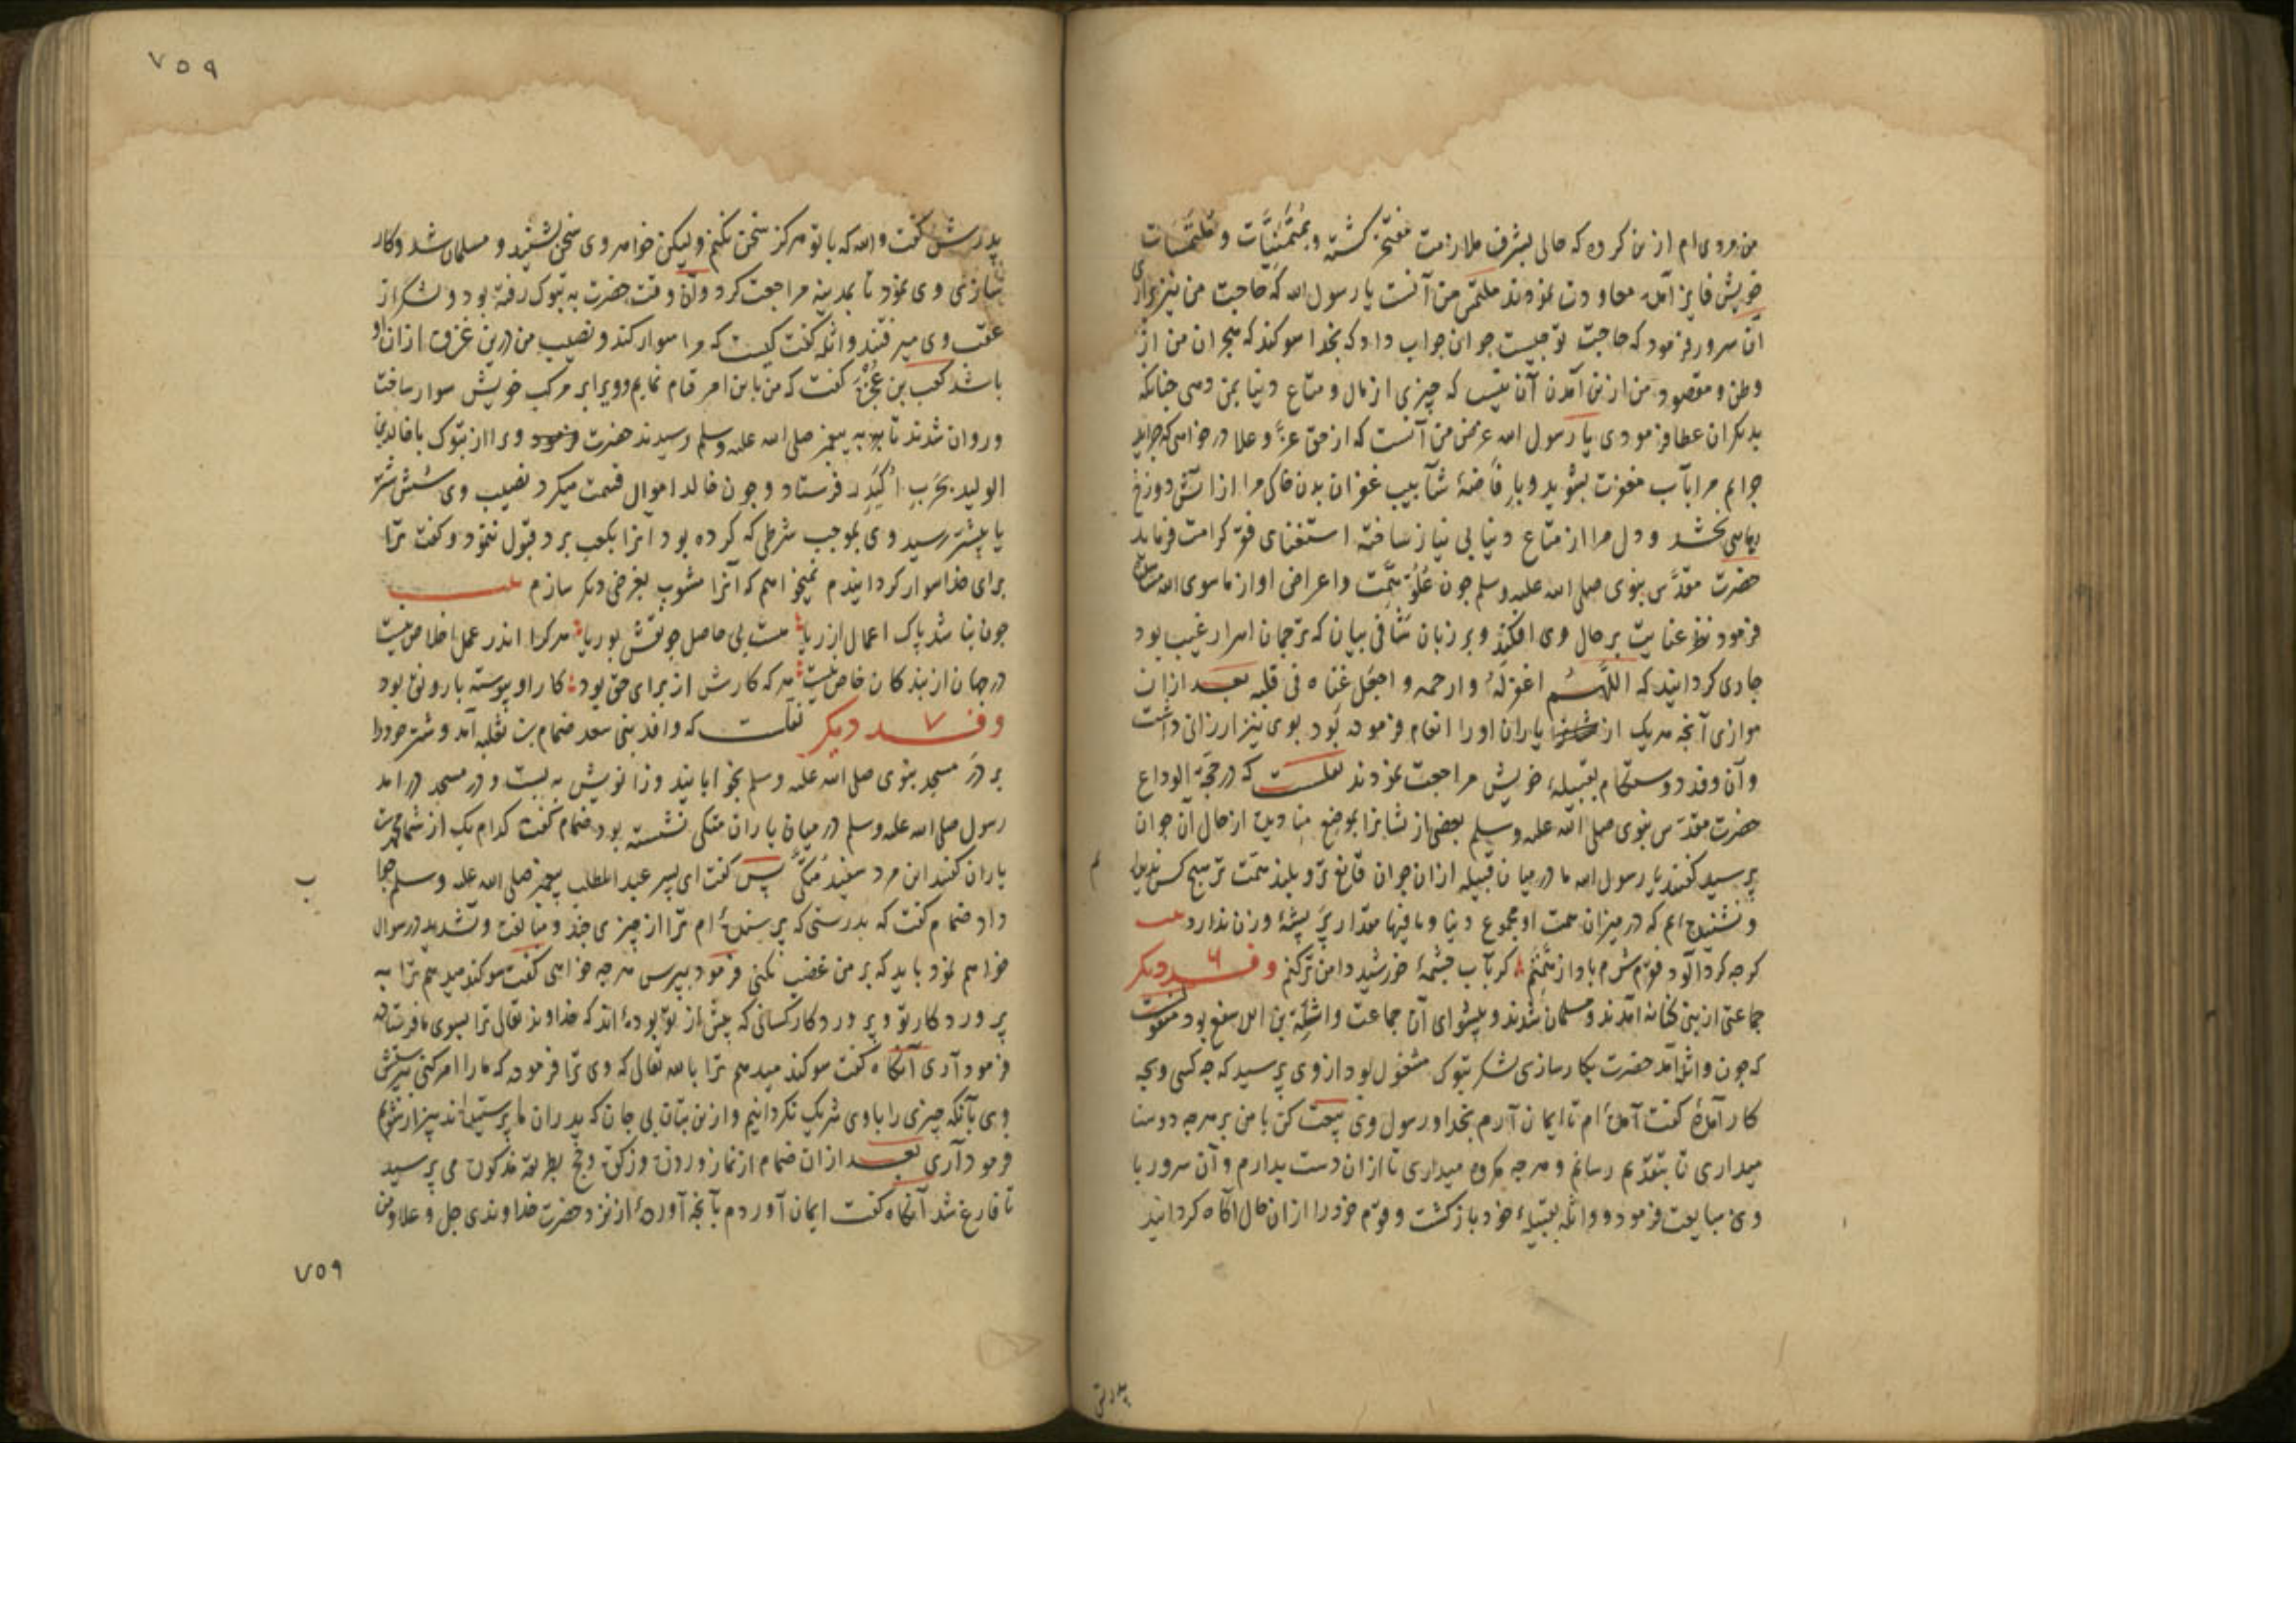 من مروی ام ازین کرده که حالی بشرف ملازمت مفتخر کشته و بمتمنیات و ملتمسات
خویش فایز آمده معاودت نمودند ملتمس من آنست یا رسول الله که حاجت من نیز برآری
آن سرور فرمود که حاجت تو چیست جوان جواب داد که بخدا سوکند که هجران من از
وطن و مقصود من ازین آمدن آن نیست که چیزی از مال و متاع دنیا بمن دهی چنانکه
بدیکران عطا فرمودی یا رسول الله غرض من آنست که از حق عز و علا درخواهی که جراید
جرایم مرا بآب مغفرت بشوید و بافاضۀ شآبیب غفران بدن خاکی مرا از آتش دوزخ
رهایی بخشد و دل مرا از متاع دنیا بی نیاز ساخته استغناى فوق کرامت فرماید
حضرت مقدس نبوی صلی الله علیه وسلم چون علو همت و اعراض او از ماسوی الله
فرمود نظر عنایت بر حال وی افکند و بر زبان شافی بیان که ترجمان اسرار غیب بود
جاری کردانید که اللهم اغفر له وارحمه واجعل غناه فی قلبه بعد ازان
موازی آنچه هر یک از یاران او را انعام فرموده بود بوی نیز ارزانی داشت
و آن وفد دوستکام بقبیلۀ خویش مراجعت نمودند نقلست که در حجة الوداع
حضرت مقدس نبوی صلی الله علیه وسلم بعضی ازیشانرا بموضع منا دید از حال آن جوان
پرسید کفتند یا رسول الله ما در میان قبیله ازان جوان قانع تر و بلند همت تر هیچ کس ندیدیم
و نشنیده ایم که در میزان همت او مجموع دنیا و مافیها مقدار پر پشۀ وزن ندارد
کرچه کردآلود فقرم شرم باد از همتم کر بآب چشمۀ خورشید دامن تر کنم وفد ٦ دیکر
جماعتی از بنی کنانه آمدند و مسلمان شدند و پیشوای آن جماعت واثلة بن الاسقع بود منقول است
که چون واثله آمد حضرت بکارسازی لشکر تبوک مشغول بود از وی پرسید که چه کسی و بچه
کار آمدۀ کفت آمده ام تا ایمان آرم بخدا و رسول وی بیعت کن با من بر هرچه دوست
میداری تا بتقدیم رسانم و هرچه مکروه میداری تا ازان دست بدارم و آن سرور با
وی مبایعت فرمود و واثله بقبیلۀ خود باز کشت و قوم خود را ازان حال آکاه کردانید
پدرش
٧٥٩
پدرش کفت والله که با تو هرکز سخن نکنم ولیکن خواهر وی سخن بشنید و مسلمان شد و کار
سازی وی نمود تا بمدینه مراجعت کرد و آن وقت حضرت به تبوک رفته بود و لشکر از
عقب وی میرفتند واثله کفت کیست که مرا سوار کند و نصیب من درین غزوه ازان او
باشد کعب بن عجره کفت که من باین امر قیام نمایم و ویرا بر مرکب خویش سوار ساخت
و روان شدند تا به پیغمبر صلی الله علیه وسلم رسیدند حضرت ویرا از تبوک با خالد بن
الولید بحرب اکیدر فرستاد و چون خالد اموال قسمت میکرد نصیب وی شش شتر
یا بیشتر رسید وی بموجب شرطی که کرده بود آنرا بکعب برد قبول ننمود و کفت ترا
برای خدا سوار کردانیدم نمیخواهم که آنرا مشوب بغرض دیکر سازم
چون نباشد پاک اعمال از ریا هست بی حاصل چو نقش بوریا هر کرا اندر عمل اخلاص نیست
در جهان از بندکان خاص نیست هر که کارش از برای حق بود کار او پیوسته با رونق بود
وفد ٧ دیکر نقلست که وافد بنی سعد ضمام بن ثعلبه آمد و شتر خود را
بر در مسجد نبوی صلی الله علیه وسلم بخوابانید و زانویش به بست و در مسجد درآمد
رسول صلی الله علیه وسلم در میان یاران متکی نشسته بود ضمام کفت کدام یک از شما محمدست
یاران کفتند این مرد سفید متکی پس کفت ای پسر عبد المطلب پیغمبر صلی الله علیه وسلم جواب
داد ضمام کفت که بدرستی که پرسنده ام ترا از چیزی چند و مبالغه و تشدید در سوال
خواهم نمود باید که بر من غضب نکنی فرمود بپرس هرچه خواهی کفت سوکند میدهم ترا به
پروردکار تو و پروردکار کسانی که پیش از تو بوده اند که خداوند تعالی ترا بسوی ما فرستاده
فرمود آری آنکاه کفت سوکند میدهم ترا بالله تعالی که وی ترا فرموده که ما را امر کنی بپرستش
وی بآنکه چیزی را با وی شریک نکردانیم و ازین بتان بی جان که پدران ما پرستیده اند بیزار شویم
فرمود آری بعد ازان ضمام از نماز و روزه و زکوة و حج بطریقه مذکوره می پرسید
تا فارغ شد آنکاه کفت ایمان آوردم بآنچه آوردۀ از نزد حضرت خداوندی جل و علا و من
٧٥٩